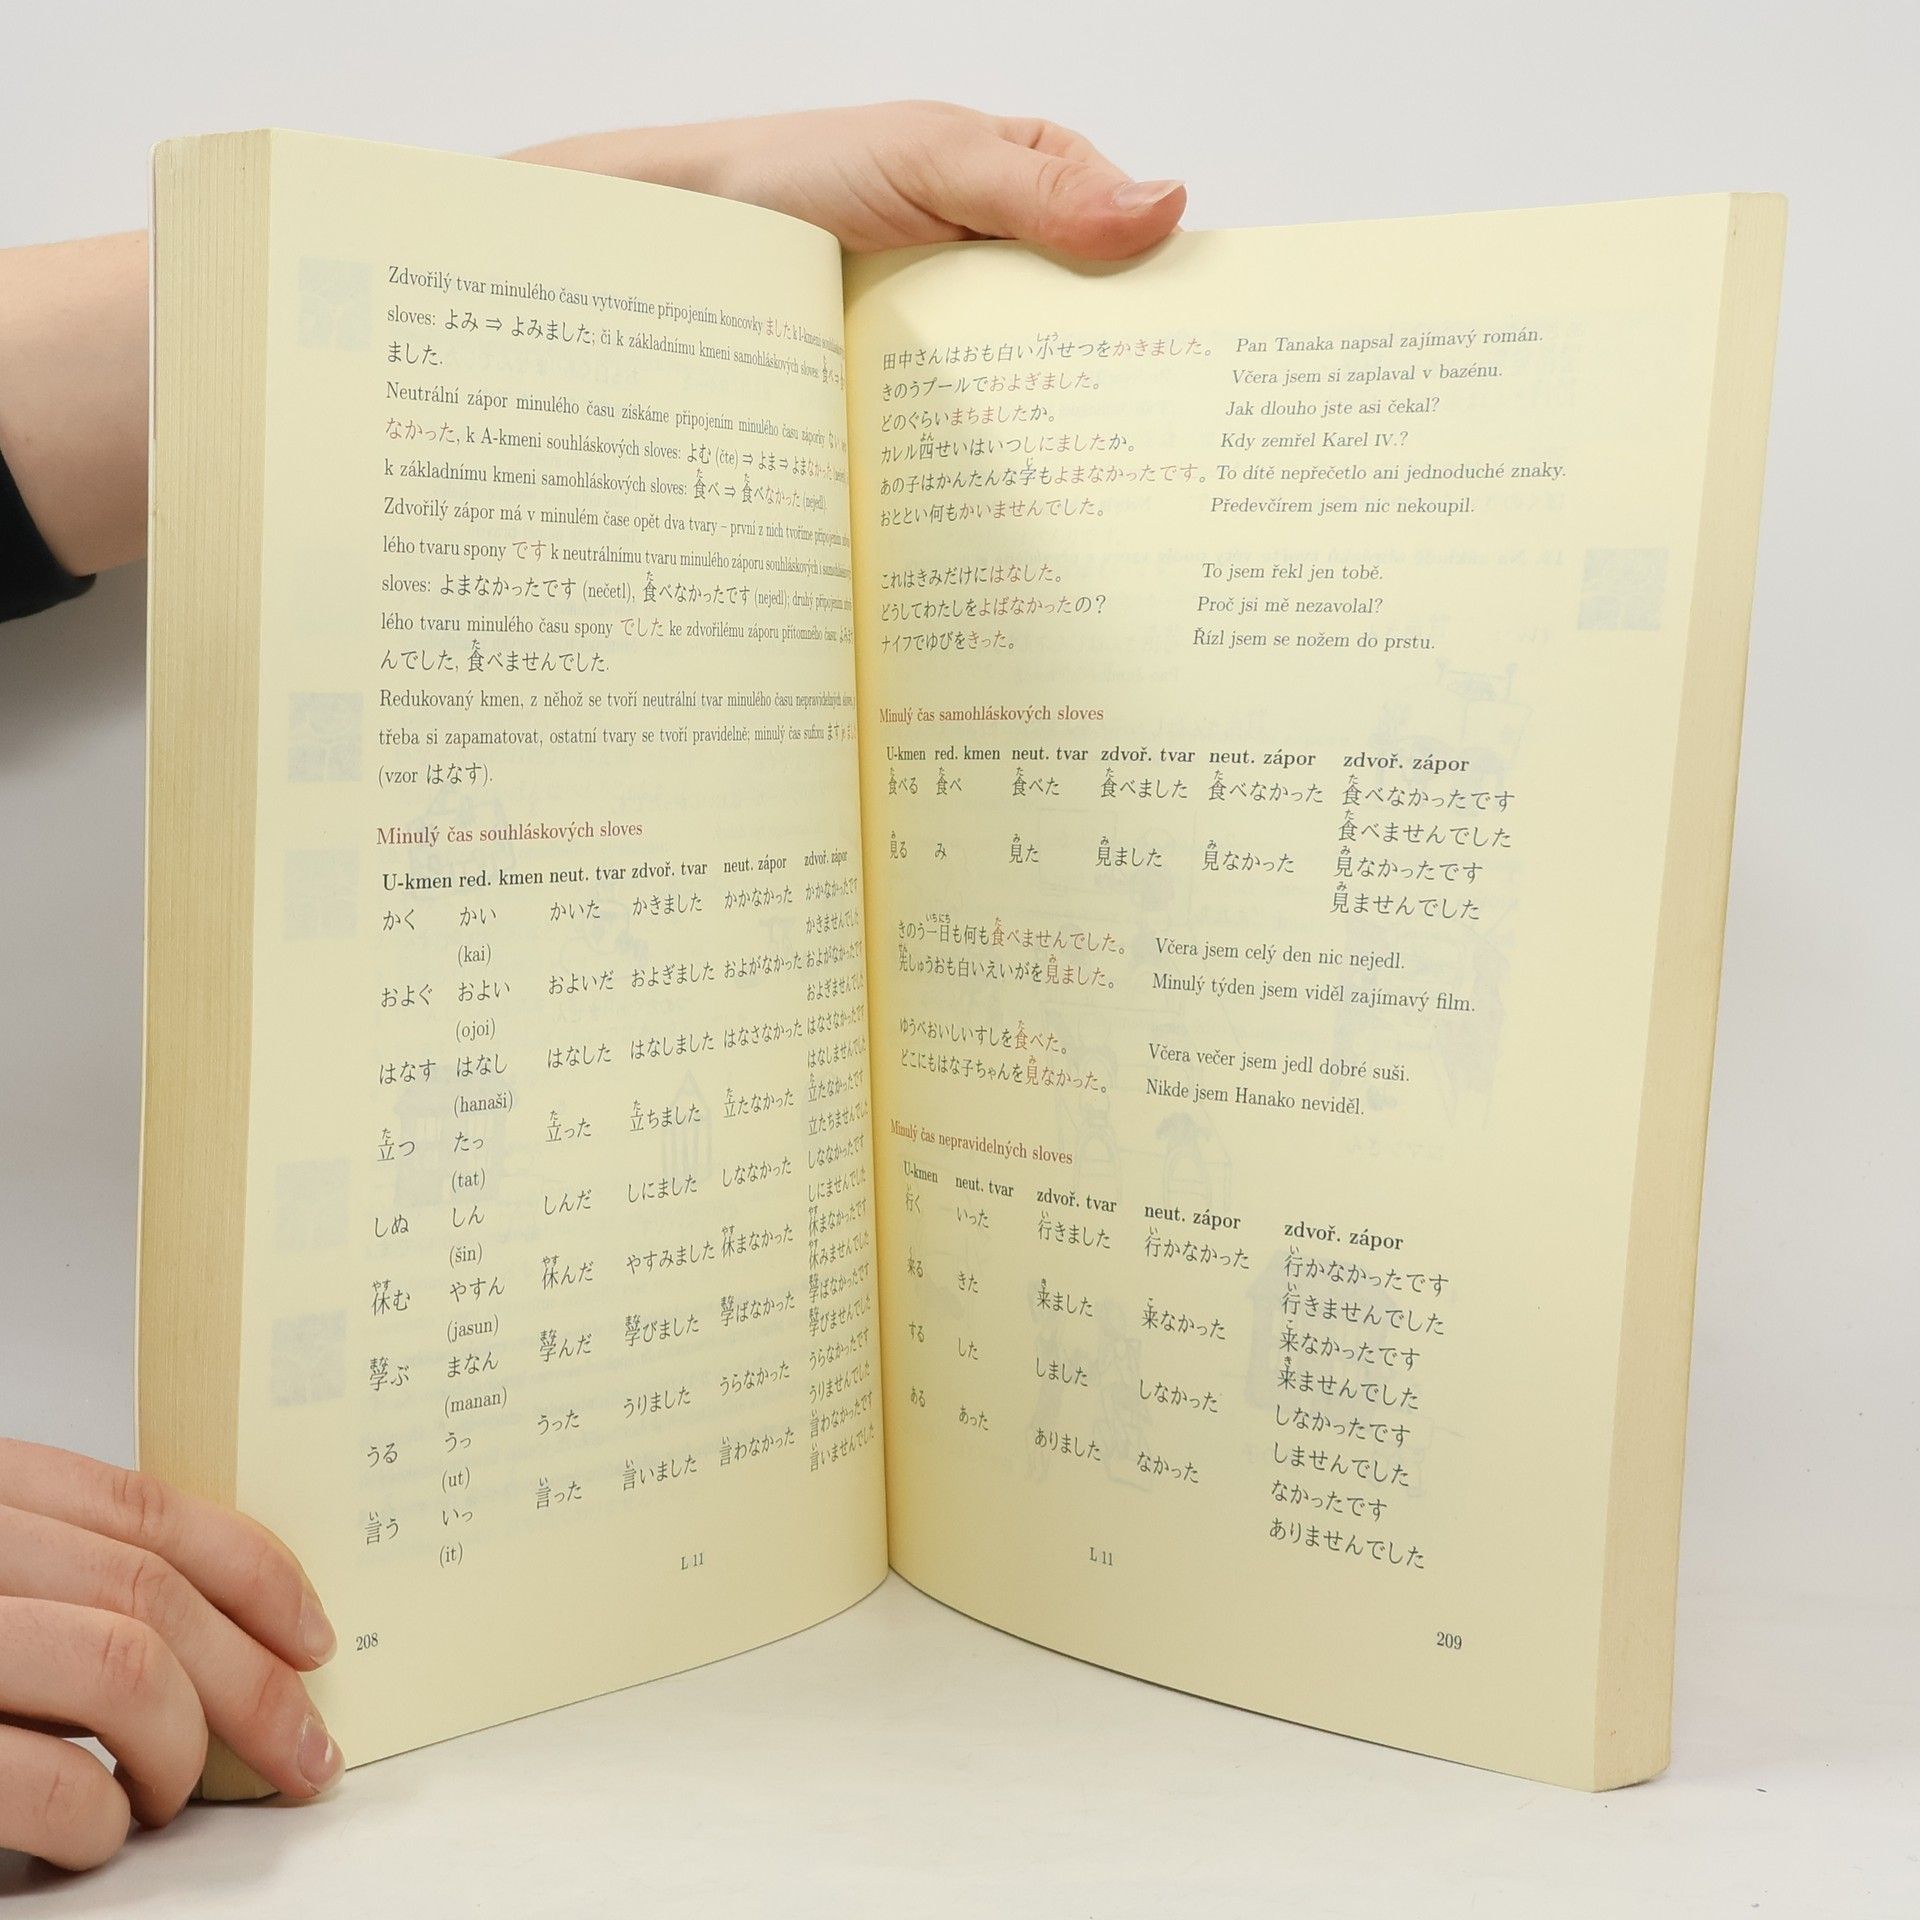 Zdvořilý tvar minulého času vytvoříme připojením koncovky ました k I-kmeni
sloves: よみ ⇒ よみました; či k základnímu kmeni samohláskových sloves: 食べ ⇒
ました.
Neutrální zápor minulého času získáme připojením minulého času záporky ない
なかった, k A-kmeni souhláskových sloves: よむ (čte) ⇒ よま ⇒ よまなかった
k základnímu kmeni samohláskových sloves: 食べ ⇒ 食べなかった (nejedl).
Zdvořilý zápor má v minulém čase opět dva tvary – první z nich tvoříme připojením
lého tvaru spony です k neutrálnímu tvaru minulého záporu souhláskových i samohláskových
sloves: よまなかったです (nečetl), 食べなかったです (nejedl); druhý připojením
lého tvaru minulého času spony でした ke zdvořilému záporu přítomného času:
んでした, 食べませんでした.
Redukovaný kmen, z něhož se tvoří neutrální tvar minulého času nepravidelných sloves,
třeba si zapamatovat, ostatní tvary se tvoří pravidelně; minulý čas sufixu ます je
(vzor はなす).
Minulý čas souhláskových sloves
U-kmen red. kmen neut. tvar zdvoř. tvar neut. zápor zdvoř. zápor
かく かい かいた かきました かかなかった かかなかったです
(kai) かきませんでした
およぐ およい およいだ およぎました およがなかった およがなかったです
(ojoi) およぎませんでした
はなす はなし はなした はなしました はなさなかった はなさなかったです
(hanaši) はなしませんでした
立つ たっ 立った 立ちました 立たなかった 立たなかったです
(tat) 立たちませんでした
しぬ しん しんだ しにました しななかった しななかったです
(šin) しにませんでした
休む やすん 休んだ やすみました 休まなかった 休まなかったです
(jasun) 休みませんでした
學ぶ まなん 學んだ 學びました 學ばなかった 學ばなかったです
(manan) 學びませんでした
うる うっ うった うりました うらなかった うらなかったです
(ut) うりませんでした
言う いっ 言った 言いました 言わなかった 言わなかったです
(it) 言いませんでした
L 11
208
田中さんはおも白い小せつをかきました。 Pan Tanaka napsal zajímavý román.
きのうプールでおよぎました。 Včera jsem si zaplaval v bazénu.
どのぐらいまちましたか。 Jak dlouho jste asi čekal?
カレル四せいはいつしにましたか。 Kdy zemřel Karel IV.?
あの子はかんたんな字もよまなかったです。 To dítě nepřečetlo ani jednoduché znaky.
おととい何もかいませんでした。 Předevčírem jsem nic nekoupil.
これはきみだけにはなした。 To jsem řekl jen tobě.
どうしてわたしをよばなかったの？ Proč jsi mě nezavolal?
ナイフでゆびをきった。 Řízl jsem se nožem do prstu.
Minulý čas samohláskových sloves
U-kmen red. kmen neut. tvar zdvoř. tvar neut. zápor zdvoř. zápor
食べる 食べ 食べた 食べました 食べなかった 食べなかったです
食べませんでした
見る み 見た 見ました 見なかった 見なかったです
見ませんでした
きのう一日も何も食べませんでした。 Včera jsem celý den nic nejedl.
先しゅうおも白いえいがを見ました。 Minulý týden jsem viděl zajímavý film.
ゆうべおいしいすしを食べた。 Včera večer jsem jedl dobré suši.
どこにもはな子ちゃんを見なかった。 Nikde jsem Hanako neviděl.
Minulý čas nepravidelných sloves
U-kmen neut. tvar zdvoř. tvar neut. zápor zdvoř. zápor
行く いった 行きました 行かなかった 行かなかったです
行きませんでした
来る きた 来ました 来なかった 来なかったです
来ませんでした
する した しました しなかった しなかったです
しませんでした
ある あった ありました なかった なかったです
ありませんでした
L 11
209